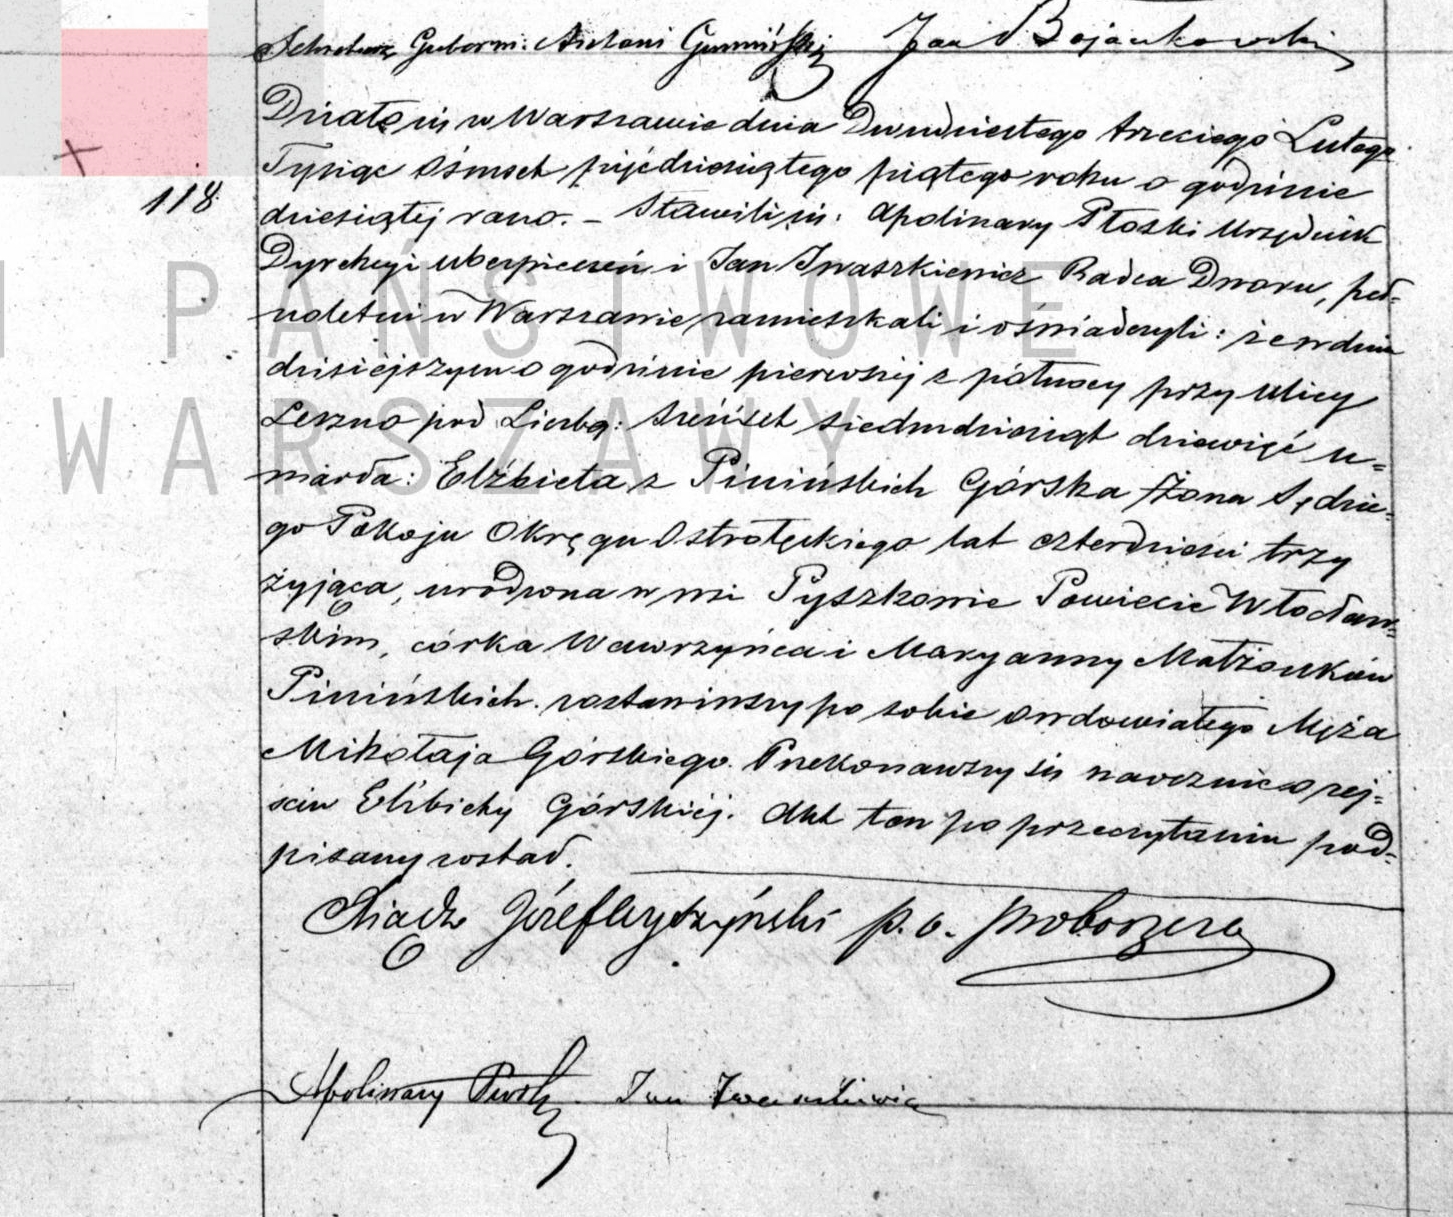 Sekretarz Guberni: Antoni Gumiński Jan Bojankowski
Działo się w Warszawie dnia Dwudziestego trzeciego Lutego
118. Tysiąc Ośmset pięćdziesiątego piątego roku o godzinie
dziesiątéj rano. – Stawili się: Apolinary Płoski Urzędnik
Dyrekcyi ubezpieczeń i Jan Iwaszkiewicz Radca Dworu, peł-
noletni w Warszawie zamieszkali i oświadczyli: że w dniu
dzisiéjszym o godzinie pierwszéj z północy przy ulicy
Leszno pod Liczbą: Sześćset siedmdziesiąt dziewięć u=
marła: Elżbieta z Pinińskich Górska Żona Sędzie=
go Pokoju Okręgu Ostrołęckiego lat czterdzieści trzy
żyjąca, urodzona w wsi Pyszkowie Powiecie Włocław=
skim, córka Wawrzyńca i Maryanny Małżonków
Pinińskich. zostawiwszy po sobie owdowiałego Męża
Mikołaja Górskiego. Przekonawszy się naocznie o zej=
sciu Elżbiety Górskiéj. Akt ten po przeczytaniu pod=
pisany został.
Xiądz Józef Wyszyński p. o. Proboszcza
Apolinary Płoski. Jan Iwaszkiewicz
PAŃSTWOWE
WARSZAWY